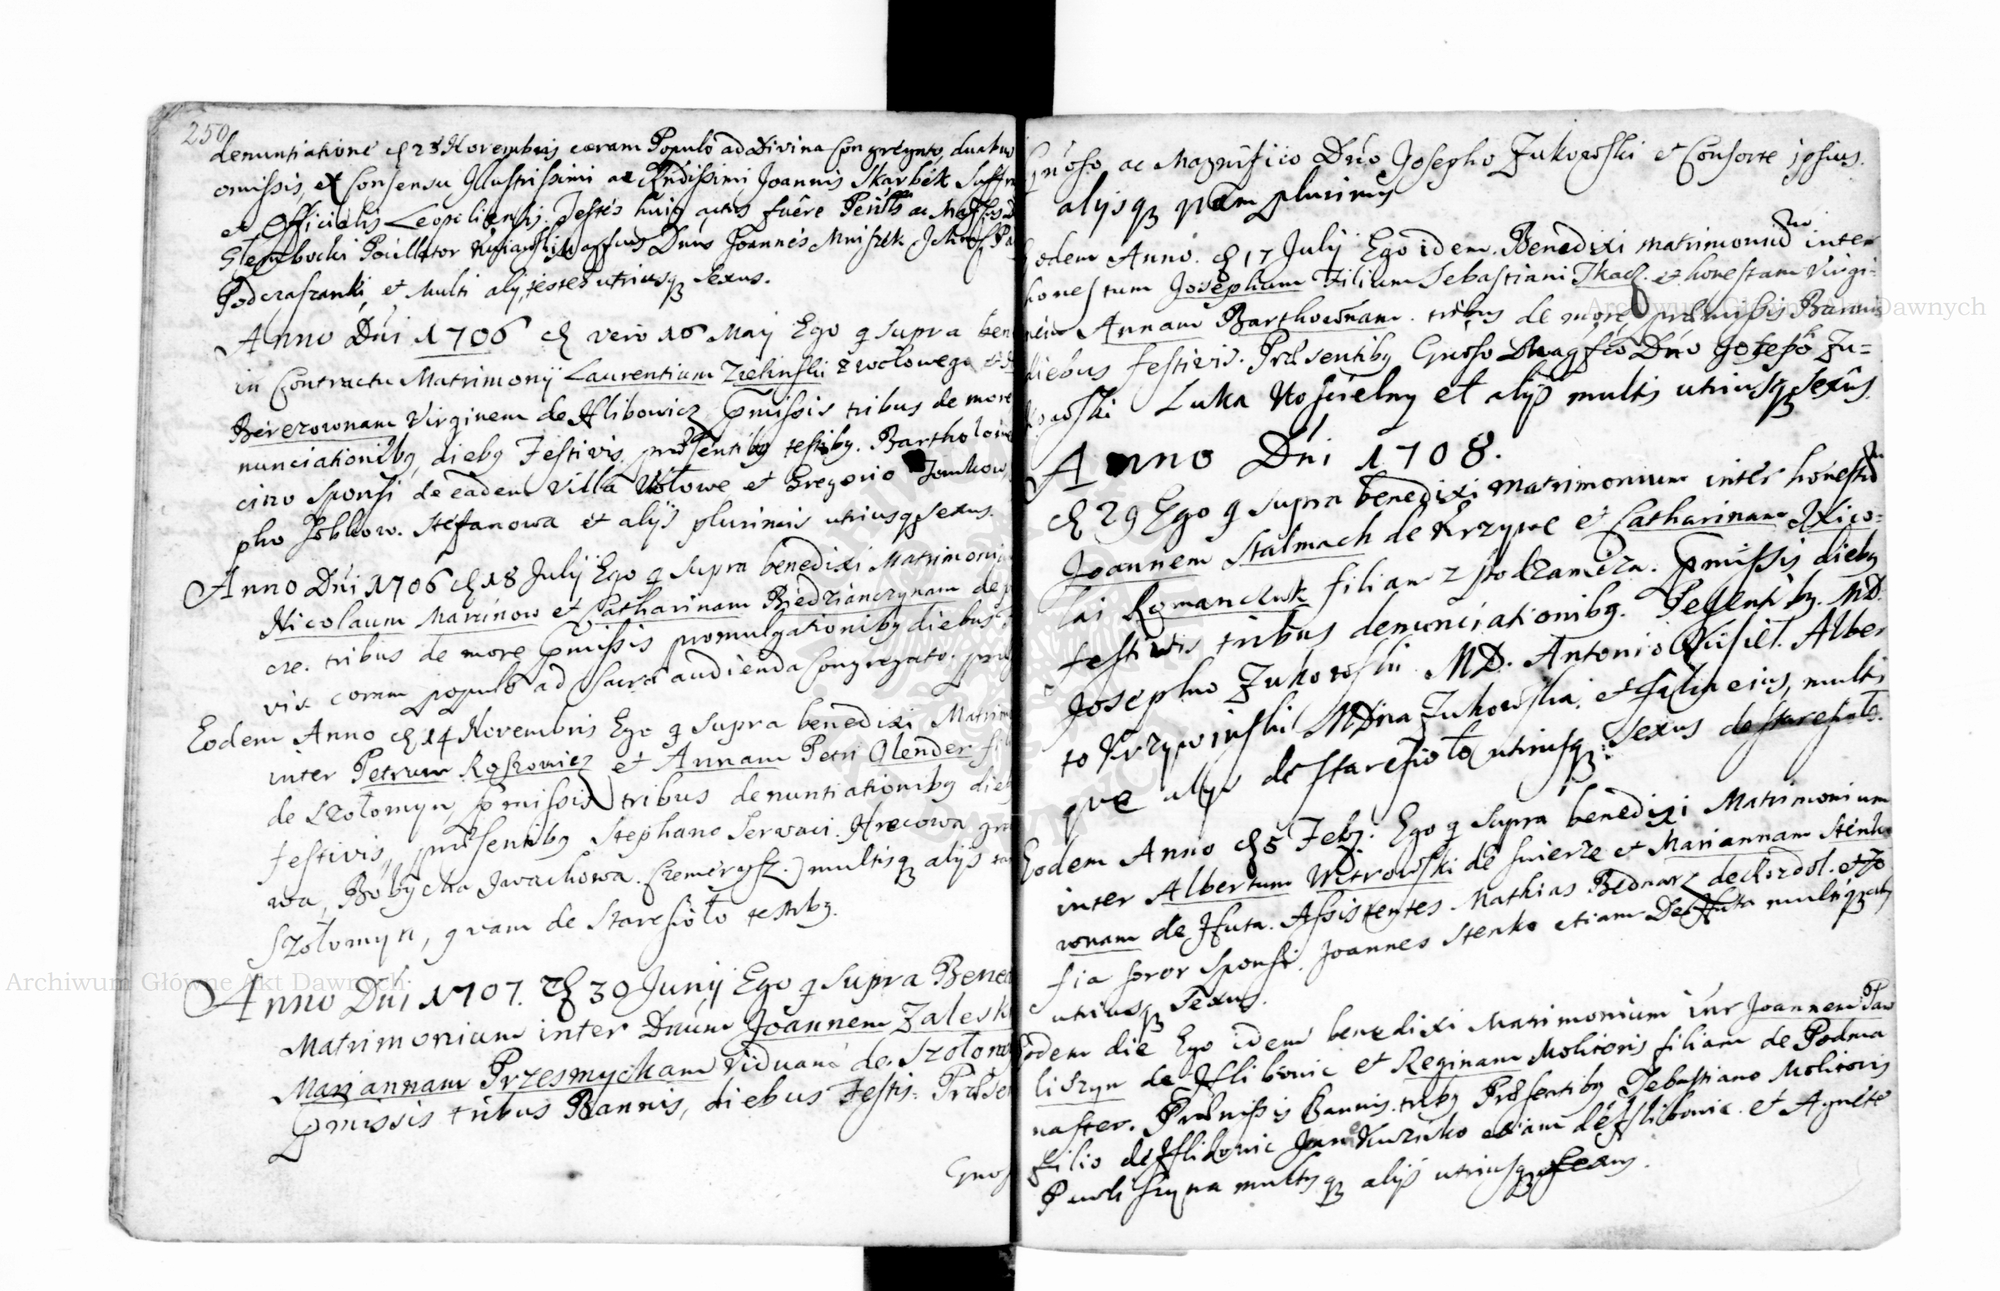 250
denuntiatione d 23 Novembris coram Populo ad Divina congregato, duabus
omissis, ex Consensu Illustrissimi ac Rndissimi Joannis Skarbek Suffra
et Officialis Leopoliensis. Testes huig actus fuere
Glembocki Dnus Joannes Mniszek
Podczaszanki, et Multi alij testes utriusq sexus.
Anno Dni 1706 d vero 16 Maij Ego q supra ben
in Contractu Matrimonij Laurentium Zielinski z wolowego
Berezownam Virginem de Hlibowicz pmissis tribus de more
nunciationibg, diebg Festivis, presentibg testibg. Bartholome
cino Sponsi de eadem villa Wolowe et Gregorio Jomkow
pho Jobkow. Stefanowa et alijs plurimis utriusq sexus.
Anno Dni 1706 d 18 Julij Ego q supra benedixi Matrimoni
Nicolaum Marcinow et Catharinam Biedrianczynam de
cze. tribus de more pmissis promulgationibg diebus
vis coram populo ad Sacra audienda Congregato.
Eodem Anno d 14 Novembris Ego q supra benedixi Matrim
inter Petrum Roszowicz et Annam Petri Olender
de Szolomyn, pmissis tribus denuntiationibg dieb
festivis, presentibg Stephano Serwaci. Hrecowa
wa, Bobycha Jwachowa. multisq alijs tam
Szolomyn, qvam de Staresiolo testibg.
Anno Dni 1707. d 30 Junij Ego q supra Bene
Matrimonium inter Dnum Joannem Zalesk
Mariannam Przesmyckam Viduam de Szolom
pmissis tribus Bannis, diebus Festis. Prese
Gnos
Gnoso ac Magnifico Dno Josepho Zukowski et Consorte ipsius.
alijsq quam plurimis
Eodem Anno. d 17 Julij Ego idem Benedixi matrimoniu inter
honestum Josephum Filium Sebastiani Tkacz. et honestam Virgi=
nem Annam Barthownam. tribus de more premissis Bannis
diebus festivis. Presentibg Gnoso Magfco Dno Josepho Zu=
kowski Luka Koscielny et alijs multis utriusq sexus.
Anno Dni 1708.
d 29 Ego q supra benedixi matrimonium inter honestu
Joannem Stalmach de Krzywe et Catharinam Nico=
lai Romanczuk filiam z podzamcza. pmissis diebg
festivis tribus denunciationibg. Pesentibg. MD.
Josepho Zukowski MD. Antonio Alber
to Krzywinski MDna Zukowska, et filia eius, multis
que alijs de Staresiolo utriusq. sexus de Staresiolo.
Eodem Anno d 5 Febg. Ego q supra benedixi Matrimonium
inter Albertum Wstrowski de Swierze et Mariannam Stenko
wnam de Huta. Assistentes Mathias Bednarz de Chozdol. et Zo
fia soror Sponsi. Joannes Stenko etiam De Huta multiq alij
utriusq Sexus.
Eodem die Ego idem benedixi Matrimonium inr Joannem Paw
liszyn de Hlibowic et Reginam Molitoris filiam de Podma
naster. Premissis Bannis. tribg Presentibg Sebastiano Molitoris
filio de Hlibowic etiam de Hlibowic. et Agnete
Pawliszyna multisq alijs utriusq sexus.
Archiwum Główne Akt Dawnych
Archiwum Główne Akt Dawnych